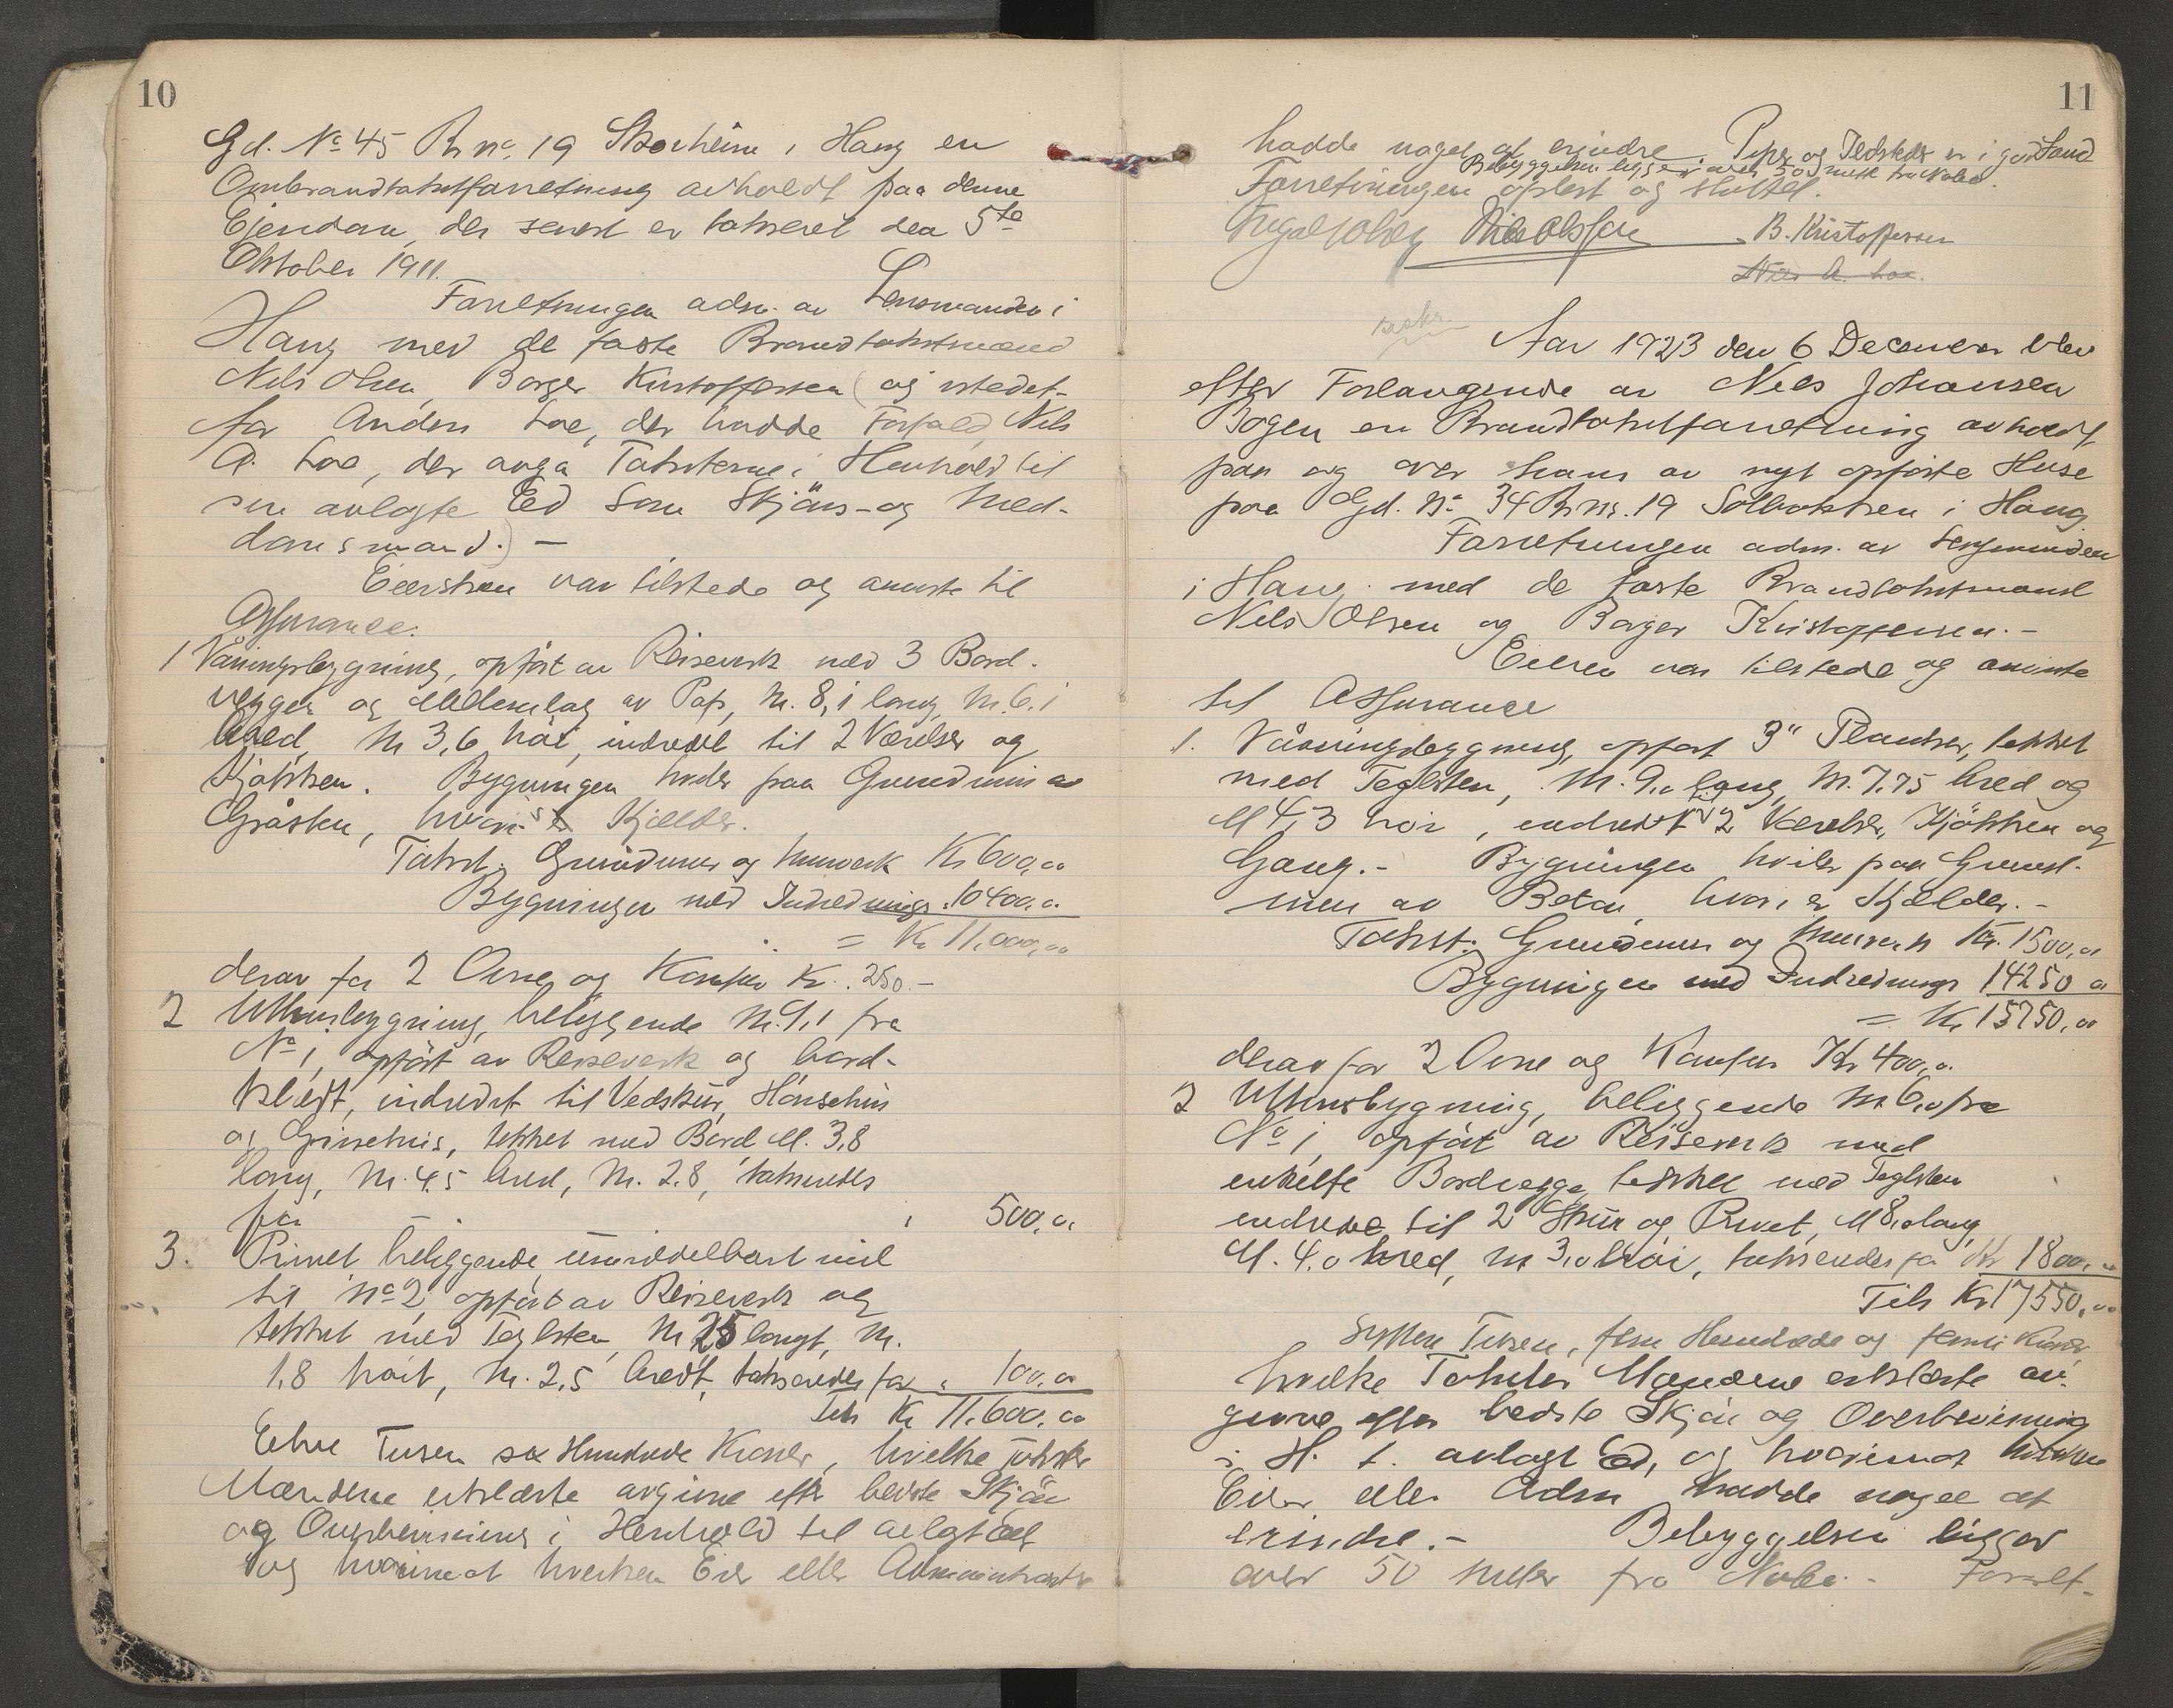 10
Gd. No 45 Br nr. 19 i Haug en
Ombrandtakstforretning avholdt paa denne
Eiendom, der senest er takseret den 5te
Oktober 1911.
Forretningen adm. av Lensmanden i
Haug med de faste Brandtakstmænd
Nils Olsen, Borger Kristoffersen (og istedet-
for Anders Loe, der hadde Forfald, Nils
A. Loe, der avga Taksterne i Henhold til
sin avlagte Ed som Skjöns- og Med-
domsmand.) -
Eiersken var tilstede og anviste til
Assurance:
1 Våningsbygning, opført av Reiseverk med 3 Bord-
vegger og Mellemlag av Pap, M. 8,1 lang, M. 6,1
bred, M 3,6 höi, indredet til 2 Værelser og
Kjökken. Bygningen hviler paa Grundmur av
Gråsten, hvori er Kjælder.
Takst: Grundmur og Murverk Kr 600,00
Bygningen med Indrednings " 10400,00
= Kr 11.000,00
derav for 2 Ovne og Komfur Kr. 250.-
2 Uthusbygning, beliggende M. 9,1 fra
No 1, opført av Reiseverk og bord-
klædt, indredet til Vedskur, Hönsehus
og Grisehus, tekket med Bord M. 3,8
lang, M. 4,5 bred, M. 2,8, takseredes
for - " 500,00
3. Privet beliggende umiddelbart ind
til No 2, opført av Reiseverk og
tekket med Teglsten, M 2,5 langt, M.
1,8 höit, M. 2,5 bredt, takseredes for " 100,00
Tils Kr 11.600,00
Elve Tusen sex Hundrede Kroner, hvilke Takster
Mændene erklærte avgivne efter bedste Skjön
og Overbevisning i Henhold til avlagt Ed
og hvorimot hverken Eier eller Administrator
11
hadde noget at erindre. Piper og Ildsteder er i god Stand
Bebyggelsen ligger over 50 meter fra Nabo.
Forretningen oplest og sluttet.
Nils Olsen B. Kristoffersen
Nils A. Loe.
Aar 1923 den 6 December blev
efter Forlangende av Nils Johansen
Bogen en Brandtakstforretning avholdt
paa og over hans av nyt opförte Huse
paa Gd. No 34 Br nr. 19 Solbakken i Haug.
Forretningen adm. av Lensmanden
i Haug med de faste Brandtakstmænd
Nils Olsen og Borger Kristoffersen. -
Eieren var tilstede og anviste
til Assurance
1. Våningsbygning, opført 3" Planker, tekket
med Teglsten, M. 9,0 lang, M. 7,75 bred og
M 4,3 höi, indredet til 2 Værelser, Kjökken og
Gang. - Bygningen hviler paa Grund-
mur av Beton, hvori er Kjælder. -
Takst: Grundmur og Murverk Kr. 1500,00
Bygningen med Indrednings 14250 00
= Kr 15750,00
derav for 2 Ovne og Komfur Kr 400,00
2 Uthusbygning, beliggende M 6,0 fra
No 1, opført av Reiseverk med
enkelte Bordvægge tekket med Teglsten
indredet til 2 Skur og Privet, M 8,0 lang,
M. 4,0 bred, M 3,0 höi, takseredes for Kr 1800,00
Tils Kr 17550,00
Sytten Tusen, fem Hundrede og femti Kroner,
hvilke Takster Mændene erklærte av-
givne efter bedste Skjön og Overbevisning
i H. t. avlagt Ed, og hvorimot hverken
Eier eller Adm hadde noget at
erindre. - Bebyggelsen ligger
over 50 meter fra Nabo. - Forret-